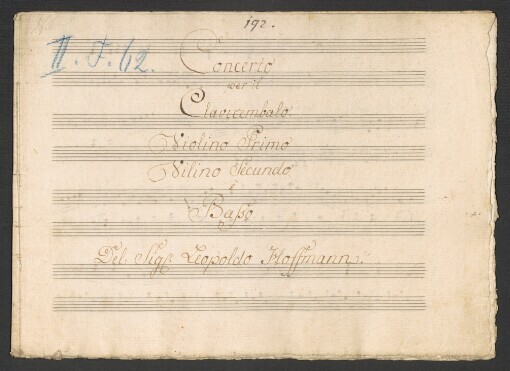 192.
II. F. 62.
Concerto
per il
Clavicembalo
Violino Primo
Vilino Secundo
è
Baßo
Del Sigre Leopoldo Hoffmann.